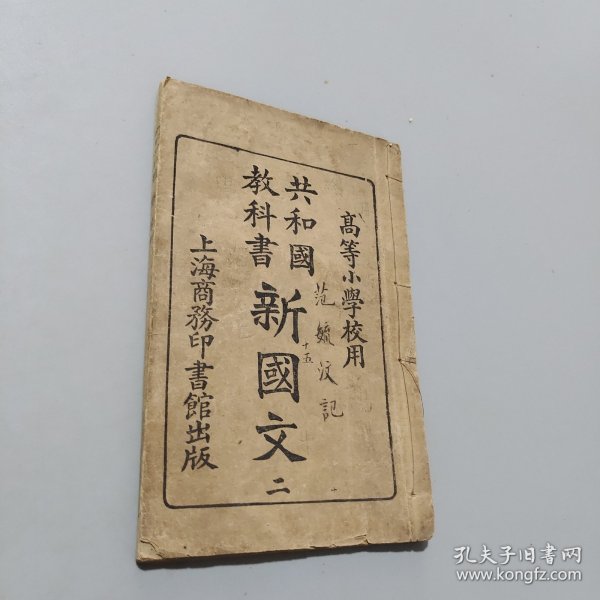 高等小學校用
共和國
教科書
新國文
二
上海商務印書館出版
范毓汶記
十五
孔夫子旧书网
www.kongfz.com